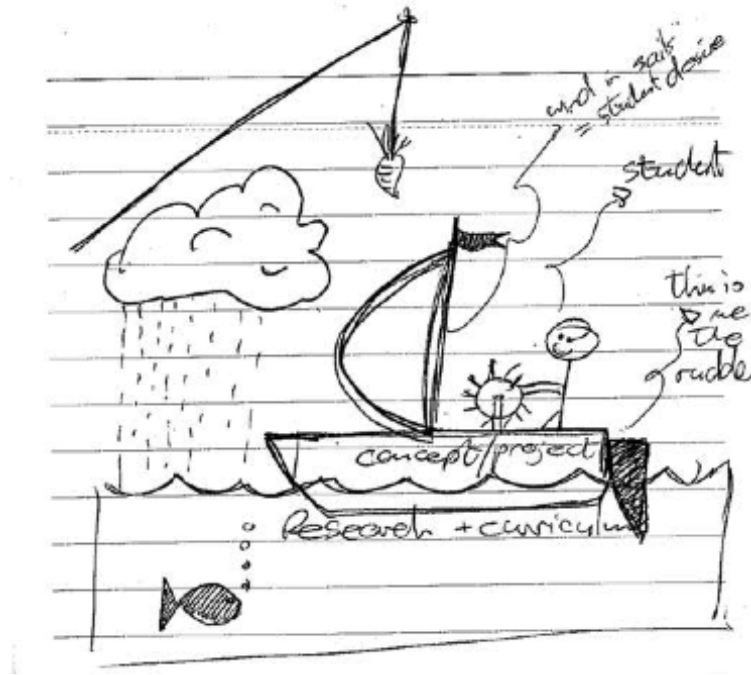 wind in sails
= student desire
student
this is
me
the
rudder
concept/project
Research + curriculum